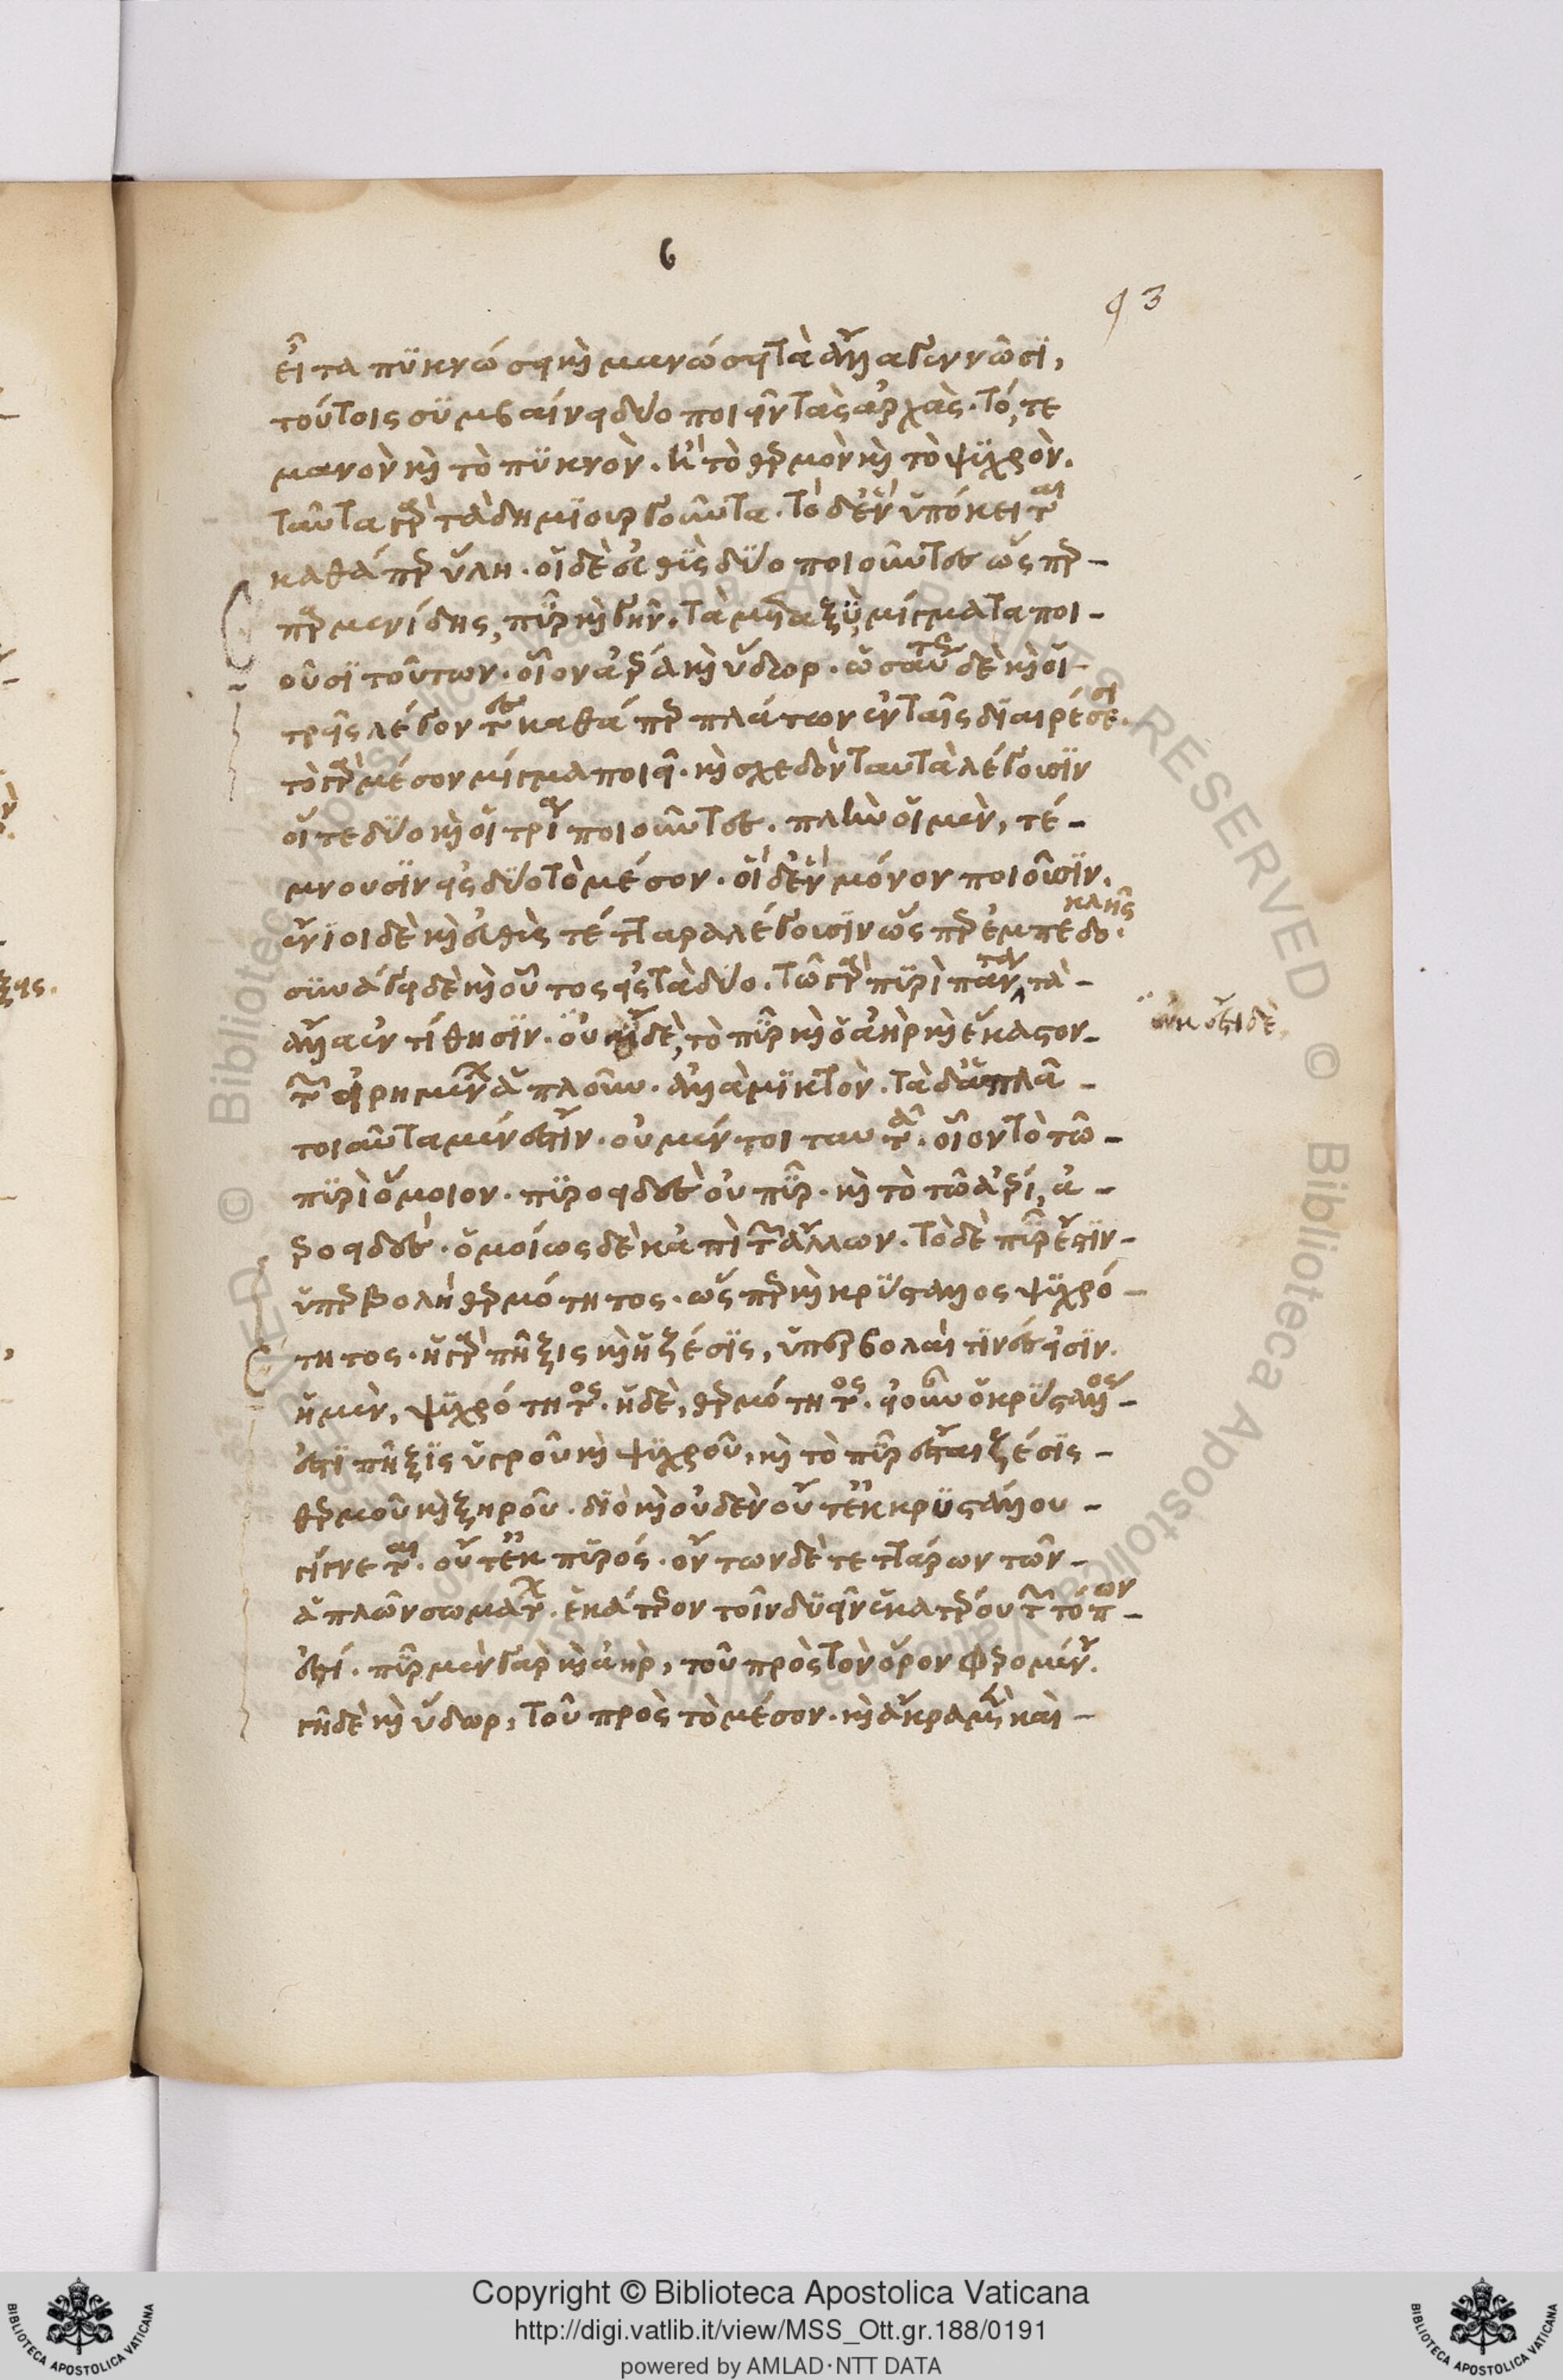 6
93
εἶτα πϋκνώσει καὶ μανώσει τὰ ἄλλα γεννῶσϊ,
τούτοις σϋμβαίνει δύο ποιεῖν τὰς ἀρχὰς. τό, τε
μανὸν καὶ τὸ πϋκνὸν. ἢ τὸ θερμὸν καὶ τὸ ψϋχρὸν.
ταῦτα γὰρ τὰ δημϊουργοῦντα. τὸ δ' ἓν ὑπόκειται
καθάπερ ὕλη. οἱ δ' εὐθὺς δύο ποιοῦντες ὥσπερ -
παρμενίδης, πῦρ καὶ γῆν. τὰ μεταξὺ, μίγματα ποι-
οῦσϊ τούτων. οἷον ἀέρα καὶ ὕδωρ. ὡσαύτως δὲ καὶ οἱ
τρεῖς λέγοντες καθάπερ πλάτων ἐν ταῖς διαιρέσεσι.
τὸ γὰρ μέσον μίγμα ποιεῖ. καὶ σχεδὸν ταυτὰ λέγουσϊν
οἵ τε δύο καὶ οἱ τρία ποιοῦντες. πλὴν οἱ μὲν, τέ-
μνουσϊν εἰς δύο τὸ μέσον. οἱ δ' ἓν μόνον ποιοῦσϊν.
ἔνϊοι δὲ καὶ εὐθὺς τέτταρα λέγουσϊν ὥσπερ ἐμπεδοκλῆς.
συνάγει δὲ καὶ οὗτος εἰς τὰ δύο. τῷ γὰρ πυρὶ πάντα τὰ -
ἄλλα ἀντιτίθησϊν. οὐκ ἔστι δὲ, τὸ πῦρ καὶ ὁ ἀὴρ καὶ ἕκαστον -
οὐκ ἔστι δὲ
τῶν εἰρημένων ἁπλοῦν. ἀλλὰ μϊκτὸν. τὰ δ' ἁπλᾶ -
τοιαῦτα μέν ἐστϊν. οὐ μέντοι ταυτά. οἷον τὸ τῷ -
πϋρὶ ὅμοιον. πϋροειδὲς οὐ πῦρ. καὶ τὸ τῷ ἀέρϊ, ἀ -
εροειδές. ὁμοίως δὲ κἀπὶ τῶν ἄλλων. τὸ δὲ πῦρ ἐστϊν -
ὑπερβολὴ θερμότητος. ὥσπερ καὶ κρύσταλλος ψϋχρό -
τητος. ἡ γὰρ πῆξις καὶ ἡ ζέσϊς, ὑπερβολαί τϊνές εἰσϊν.
ἡ μὲν, ψϋχρότητος. ἡ δὲ, θερμότητος. εἰ οὖν ὁ κρύσταλλος -
ἐστὶ πῆξϊς ὑγροῦ καὶ ψϋχροῦ, καὶ τὸ πῦρ ἔσται ζέσϊς -
θερμοῦ καὶ ξηροῦ. διὸ καὶ οὐδὲν οὔτ' ἐκ κρϋστάλλου -
γίγνεται. οὔτ' ἐκ πϋρός. ὄντων δὲ τεττάρων τῶν -
ἁπλῶν σωμάτων. ἑκάτερον τοῖν δϋεῖν ἑκατέρου τῶν τόπων -
ἐστί. πῦρ μὲν γὰρ καὶ ἀὴρ, τοῦ πρὸς τὸν ὅρον φερομένου.
γῆ δὲ καὶ ὕδωρ, τοῦ πρὸς τὸ μέσον. καὶ ἄκρα μὲν καὶ -
Copyright © Biblioteca Apostolica Vaticana
http://digi.vatlib.it/view/MSS_Ott.gr.188/0191
powered by AMLAD·NTT DATA